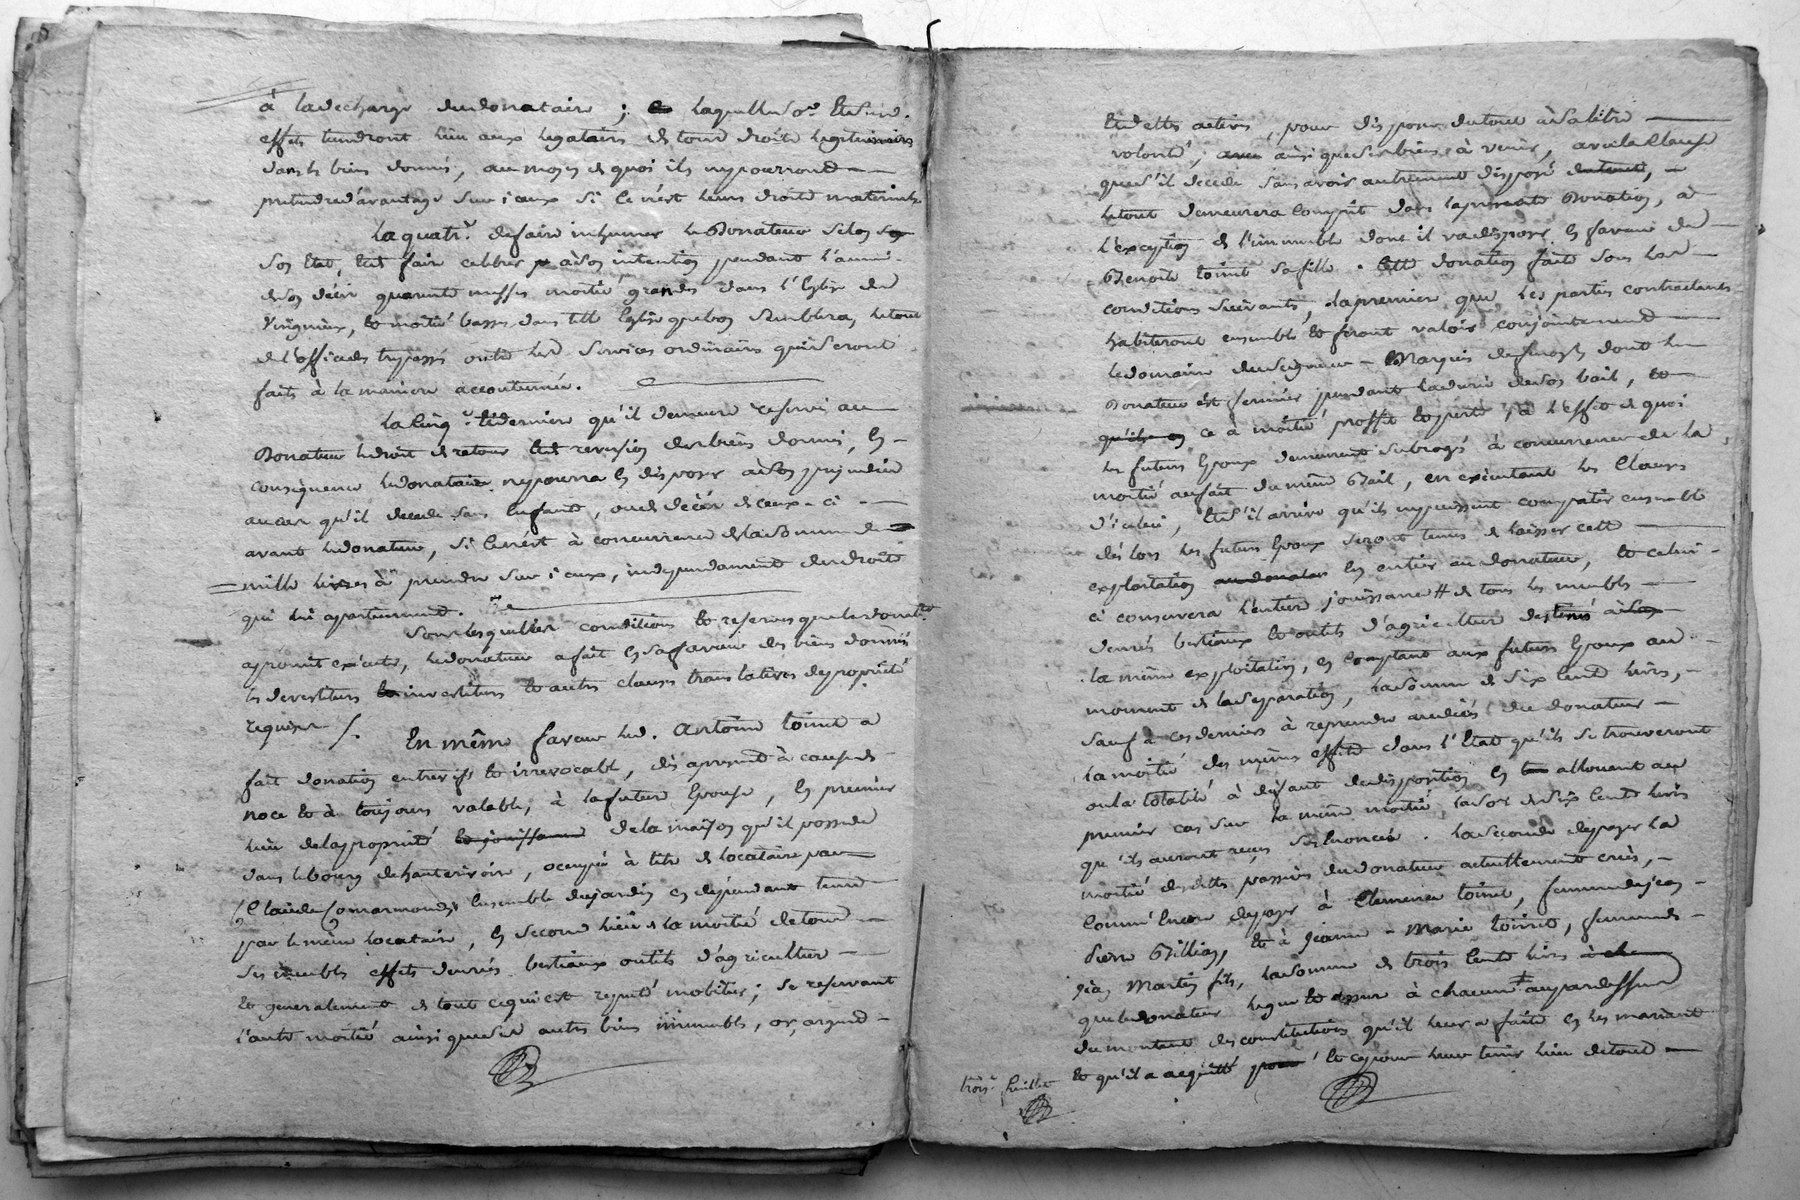 à ladecharge dudonataire ; laquelle so.e
effets tiendront lieu aux legataires de tous droits legitimaires
dans les biens donnés, au moyen de quoi ils ny pourront
prétendre d'avantage sur iceux si ce n'est leurs droits maternels.
La quatr.e de faire inhumer le Donateur selon
son Etat, et faire celebrer à son intention pendant l'année
de son décès quarante messes moitié grandes dans l'Eglise de
Virignieux, et moitié basses dans telle Eglise que bon semblera, le tout
de l'office des trepassés outre les services ordinaires qui seront
faits à la maniere accoutumée.
La cinq.e et derniere qu'il demeure reservé au
Donateur le droit de retour et reversion des biens donnés, en
consequence le donataire ne pourra en disposer à son prejudice
au cas qu'il decede sans enfants, ou de décès de ceux-ci
avant le donateur, si ce n'est à concurrence de la somme de
mille livres à prendre sur iceux, independament des droits
qui lui apartiennent.
Sous lesquelles conditions et reserves que le donat.re
a promit executer, le donateur a fait en sa faveur des biens donnés
les devestitures investitures et autres clauses translatives de propriété
requises /.
En même faveur led. Antoine toinet a
fait donation entrevifs et irrevocable, dès apresent à cause de
noce et à toujours valable, à la future Epouse, en premier
lieu de la proprieté et jouissance de la maison qu'il possede
dans le bourg de hauterivoire, occupée à titre de locataire par
Claude ensemble du jardin en dependant tenu
par le même locataire, en second lieu de la moitié de tous
ses meubles effets denrées bestiaux outils d'agriculture
et generalement de tout ce qui est reputé mobilier ; se reservant
l'autre moitié ainsi que ses autres biens immeubles, or, argent
et dettes actives, pour disposer du tout à sa libre
volonté, ainsi que des biens à venir, avec la clause
que s'il decede sans avoir autrement disposé du tout,
le tout demeurera compris dans la presente Donation, à
l'exception de l'immeuble dont il va disposer en faveur de
Benoite toinet sa fille. Cette donation faite sous les
conditions suivantes, la premiere que les parties contractantes
habiteront ensemble et feront valoir conjointement
le domaine du seigneur Marquis dont le
Donateur est fermier pendant la durée de son bail, et
qu'ils en ce à moitié proffit et perte, à l'effet de quoi
les futurs Epoux demeurent subrogés à concurrence de la
moitié au fait du même Bail, en exécutant les clauses
d'icelui, et s'il arrive qu'ils ne puissent compatir ensemble
dès lors les futurs Epoux seront tenus de laisser cette
exploitation au donateur en entier au donateur, et celui
ci conservera l'entiere jouissance # de tous les meubles
denrés bestiaux et outils d'agriculture destinés à
la même exploitation, en comptant aux futurs Epoux au
moment de la separation, la somme de six cent livres,
sauf à ces derniers à reprendre au décès du donateur
la moitié des mêmes effets dans l'Etat qu'ils se trouveront
ou la totalité à défaut de disposition en allouant au
premier cas sur la même moitié, la so.e de six cents livres
qu'ils auront reçu . La seconde de payer la
moitié des dettes passives du donateur actuellement crées,
comme encore de payer à Clemence toinet, femme de jean
Pierre Billion, et à Jeanne-Marie toinet, femme de
jean Martin fils, la somme de trois cents livres
que le donateur legue et assure à chacune au par dessus
du montant des constitutions qu'il leur a faite en les mariant
et qu'il a acquitté et ce pour leur tenir lieu de tout
trois.e feuillet